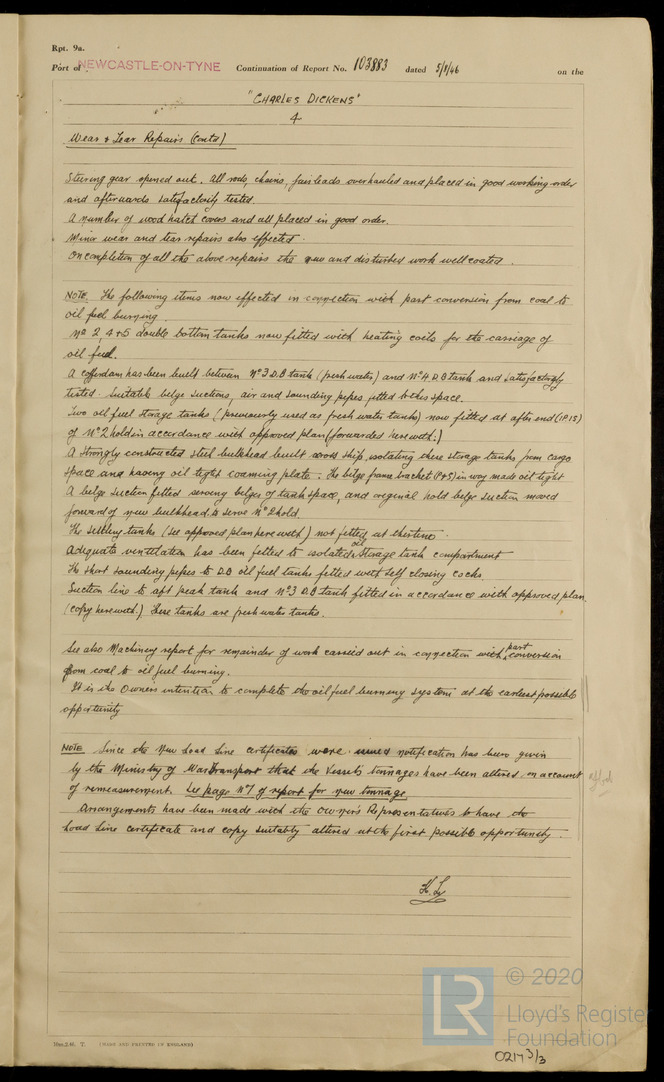 Rpt. 9a.
Port of NEWCASTLE-ON-TYNE Continuation of Report No. 103883 dated 5/8/46 on the
"CHARLES DICKENS"
4
Wear & Tear Repairs (Contd)
Steering gear opened out. All rods, chains, fairleads overhauled and placed in good working order
and afterwards satisfactorily tested.
A number of wood hatch covers and all placed in good order.
Minor wear and tear repairs also effected.
On completion of all the above repairs the new and disturbed work well coated.
NOTE. The following items now effected in connection with part conversion from coal to
oil fuel burning.
Nos 2, 4 & 5 double bottom tanks now fitted with heating coils for the carriage of
oil fuel.
A cofferdam has been built between No 3 D.B tank (fresh water) and No 4 D.B tank and satisfactorily
tested. Suitable belge suctions, air and sounding pipes fitted to this space.
Two oil fuel storage tanks (previously used as fresh water tanks) now fitted at after end (1P.1S)
of No 2 hold in accordance with approved plan (forwarded herewith.)
A strongly constructed steel bulkhead built across ship, isolating these storage tanks from cargo
space and having oil tight coaming plate. The bilge frame bracket (P&S) in way made oil tight
A belge suction fitted serving belges of tank space, and original hold belge suction moved
forward of new bulkhead to serve No 2 hold.
The settling tanks (see approved plan herewith) not fitted at this time.
Adequate ventilation has been fitted to isolated oil storage tank compartment
The short sounding pipes to D.B oil fuel tanks fitted with self closing cocks.
Suction line to aft peak tank and No 3 D.B tank fitted in accordance with approved plan
(copy herewith.) These tanks are fresh water tanks.
See also Machinery report for remainder of work carried out in connection with part conversion
from coal to oil fuel burning.
It is the Owners intention to complete the oil fuel burning system at the earliest possible
opportunity
NOTE Since the New Load Line certificates were issued notification has been given
by the Ministry of War Transport that the Vessels tonnages have been altered, on account
of remeasurement. See page No 1 of report for new tonnage
Arrangements have been made with the Owner's Representatives to have the
Load Line certificate and copy suitably altered at the first possible opportunity.
(MADE AND PRINTED IN ENGLAND)
LR
© 2020
Lloyd's Register
Foundation
0217 3/3